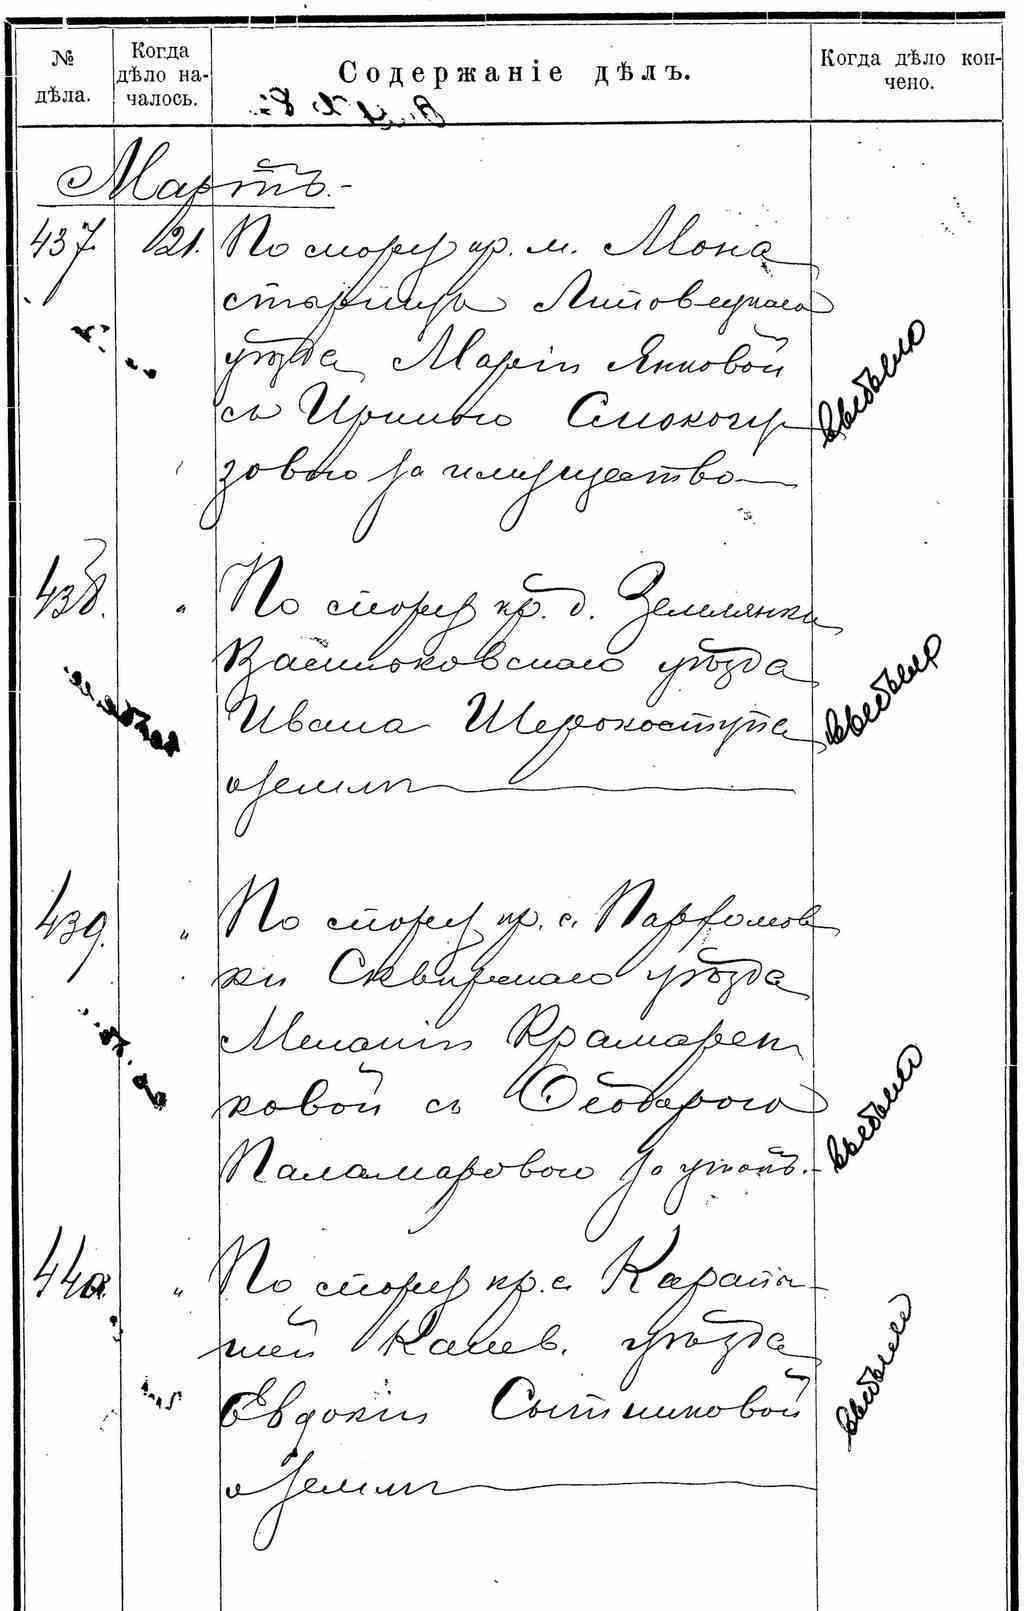 № дѣла.
Когда дѣло на-
чалось.
Содержаніе дѣлъ.
Когда дѣло кон-
чено.
Мартъ.
437. 21. По спору кр. м. Мона
стырища Липовецкаго
уѣзда Маріи Янковой
съ Ириною
зовою за имущество
438. " По спору кр. д. Землянки
Васильковскаго уѣзда
Ивана Шерокоступа
о землѣ
439. " По спору кр. с. Парфомов
ки Сквирскаго уѣзда
Меланіи Крамарен
ковой съ Ѳеодорою
Паламаровою за
440. " По спору кр. с. Карапы
шей Канев. уѣзда
Евдокіи Сытниковой
о землѣ
выбыло
выбыло
выбыло
выбыло